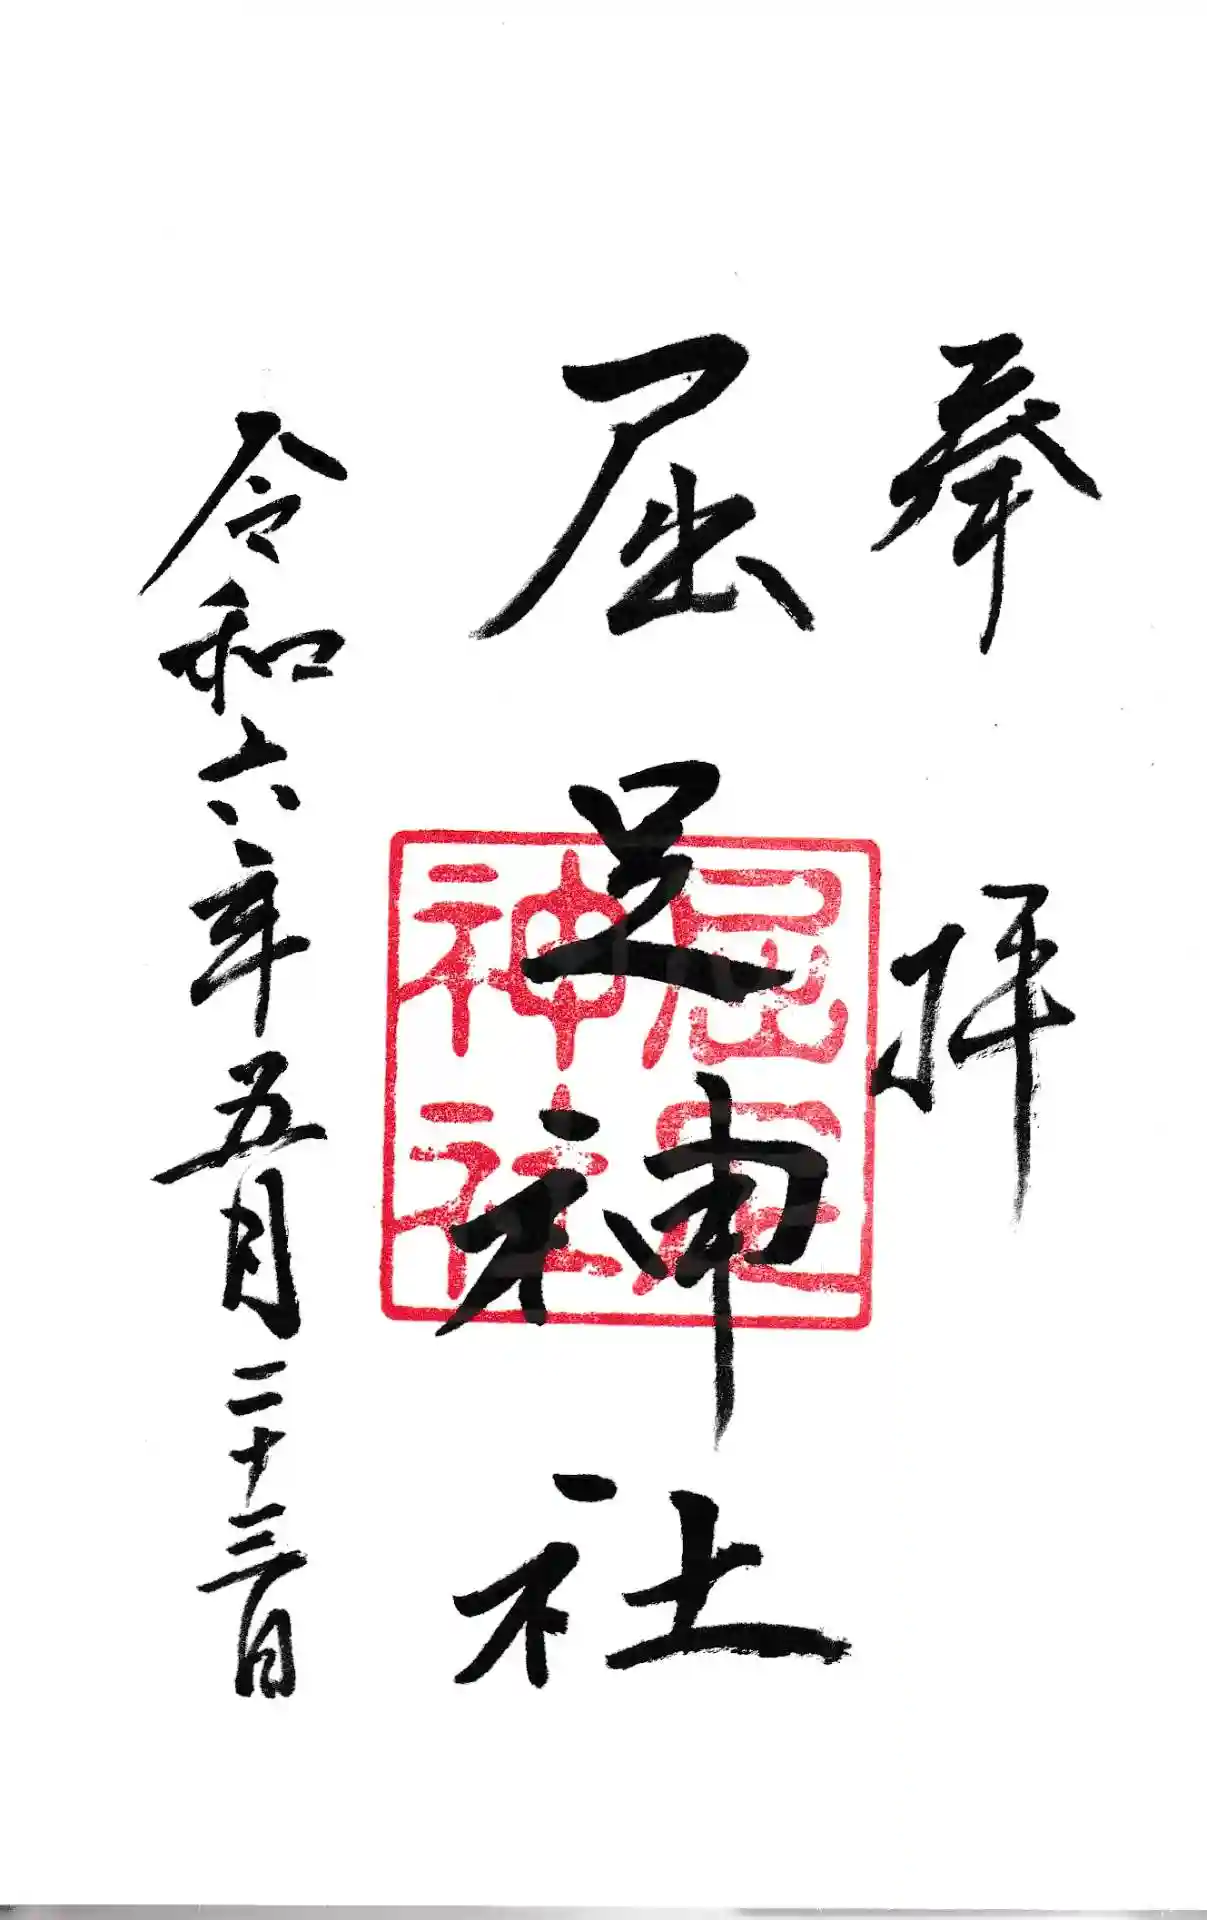 奉拝
屈足神社
屈足神社
令和六年五月二十三日